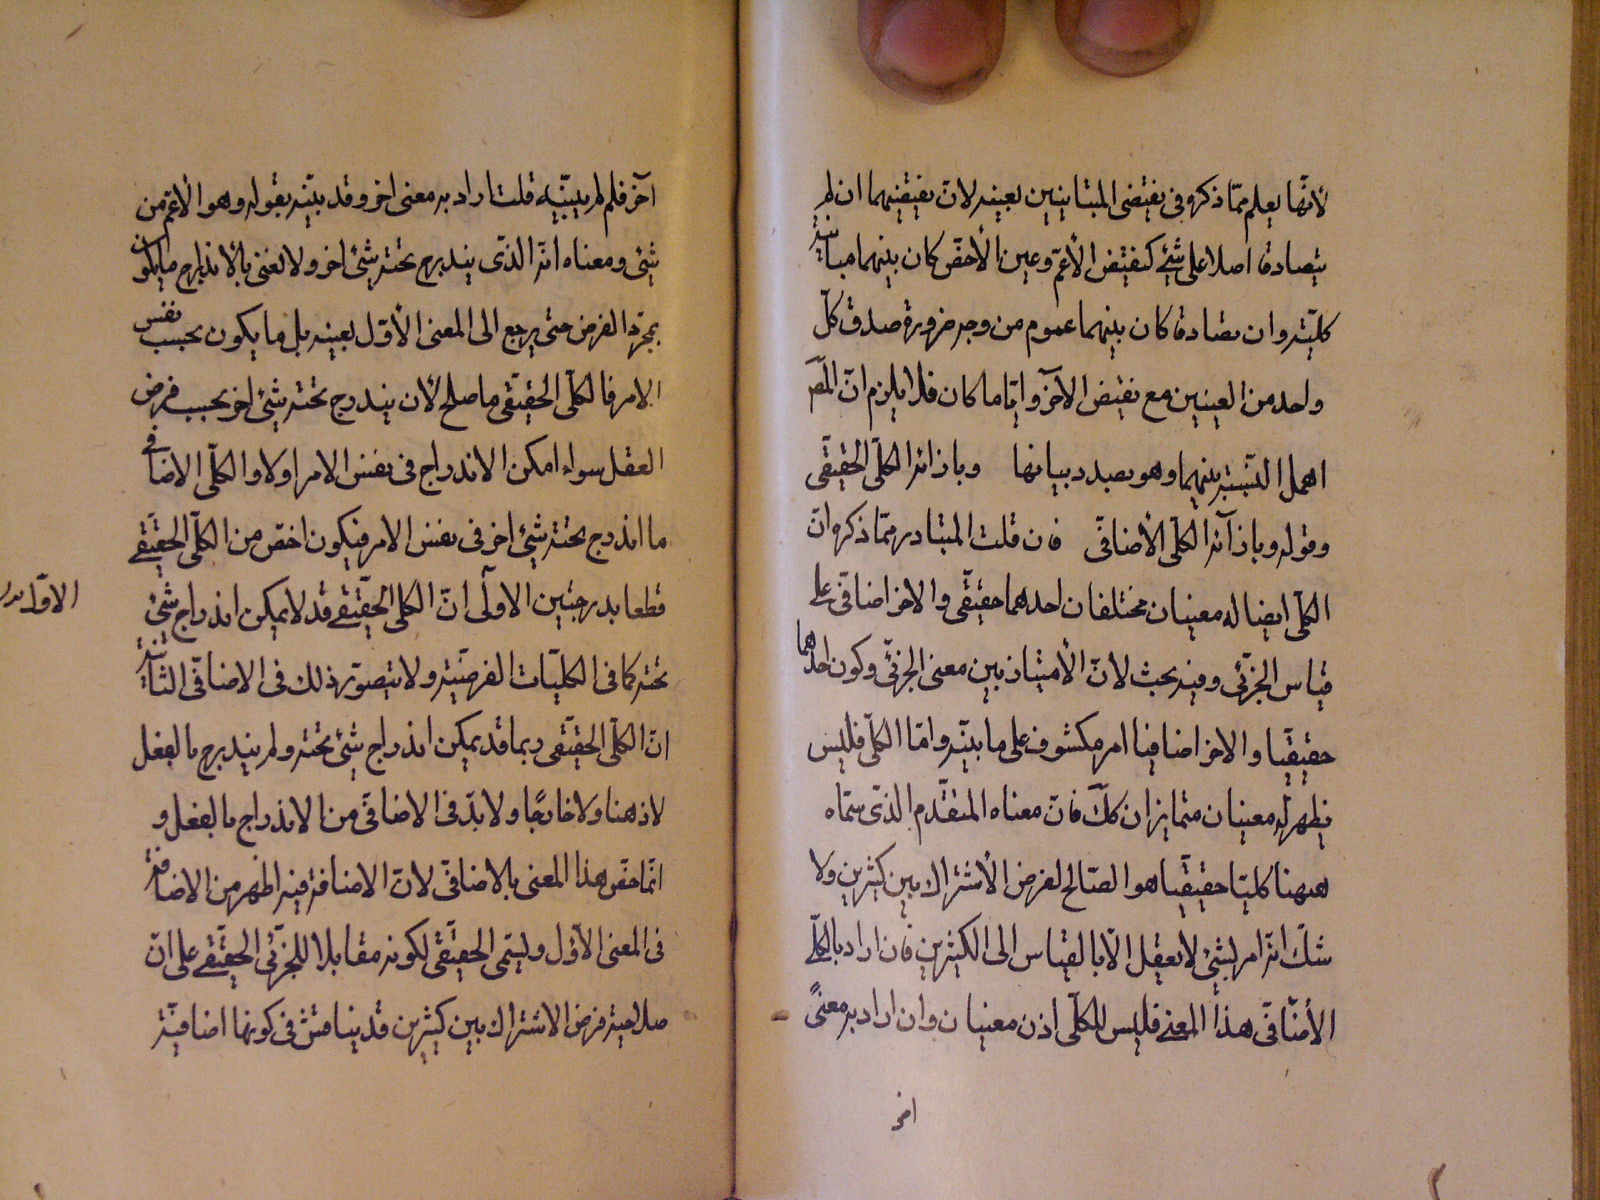 لأنها يعلم مما ذكره في نقيضى المتباينين بعينه لان نقيضيهما ان لم
يتصادقا اصلا على شئ كنقيض الأعم وعين الأخص كان بينهما مباينة
كلية وان تصادقا كان بينهما عموم من وجه ضرورة صدق كل
واحد من العينين مع نقيض الآخر وايّاما كان فلا يلزم انّ المص
اهمل النسبة بينهما وهو بصدد بيانها وبازائه الكلّى الحقيقى
وقوله وبازآئه الكلّى الأضافى فان قلت المتبادر ممّا ذكره انّ
الكلّى ايضا له معنيان مختلفان احدهما حقيقى والاخر اضافى على
قياس الجزئى وفيه بحث لانّ الأمتياز بين معنى الجزئى وكون احدهما
حقيقيا والاخر اضافيا امر مكشوف على ما بيّنه وامّا الكلّى فليس
يظهر له معنيان متمايزان كك فانّ معناه المتقدّم الذى سمّاه
ههنا كليّا حقيقيا هو الصّالح لفرض الأشتراك بين كثيرين ولا
شكّ انّه امر لشئ لا يعقل الّا بالقياس الى الكثيرين فان اراد بالكلّى
الأضافى هذا المعنى فليس للكلّى اذن معنيان وان اراد به معنىً
اخر
آخر فلم لم يبيّنه قلت اراد به معنى اخر وقد بيّنه بقوله وهو الأعم من
شئ ومعناه انّه الذى يندرج تحته شئ اخر ولا نعنى بالأندراج ما يكون
بمجرّد الفرض حتى يرجع الى المعنى الأوّل بعينه بل ما يكون بحسب نفس
الامر فالكلّى الحقيقى ما صلح لأن يندرج تحته شئ اخر بحسب فرض
العقل سواء امكن الاندراج فى نفس الامر اولا والكلّى الاضافى
ما اندرج تحته شئ اخر فى نفس الامر فيكون اخصّ من الكلّى الحقيقى
قطعا بدرجتين الاولى انّ الكلى الحقيقى قد لا يمكن اندراج شئ
تحته كما فى الكليّات الفرضيّة ولا يتصوّر ذلك فى الاضافى الثانية
انّ الكلّى الحقيقى ربما قد يمكن اندراج شئ تحته ولم يندرج بالفعل
لا ذهنا ولا خارجًا ولا بدّ فى الاضافى من الاندراج بالفعل و
انّما خصّ هذا المعنى بالاضافى لانّ الاضافة فيه اظهر من الاضافة
فى المعنى الأوّل وليسمى الحقيقى لكونه مقابلا للجزئى الحقيقى على انّ
صلاحية فرض الاشتراك بين كثيرين قد يناقش فى كونها اضافيّة